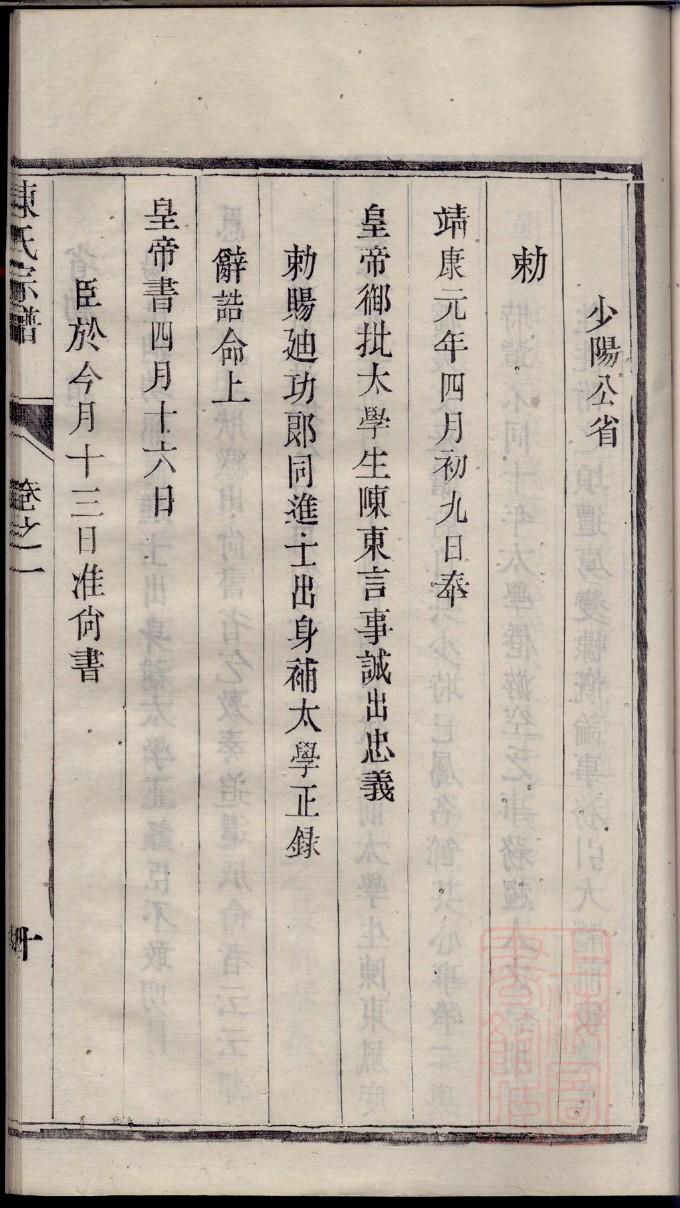 少陽公省
勅
靖康元年四月初九日奉
皇帝御批太學生陳東言事誠出忠義
勅賜廸功郎同進士出身補太學正錄
辭誥命上
皇帝書四月十六日
臣於今月十三日准尙書
陳氏宗譜
卷之一
十